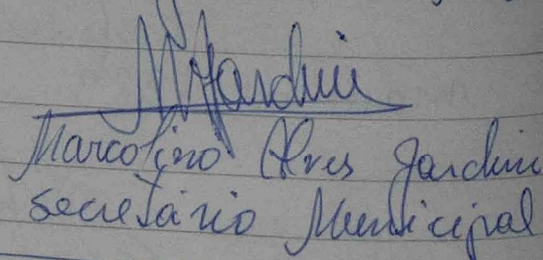 MJardim
Marcolino Alves Jardim
secretário Municipal